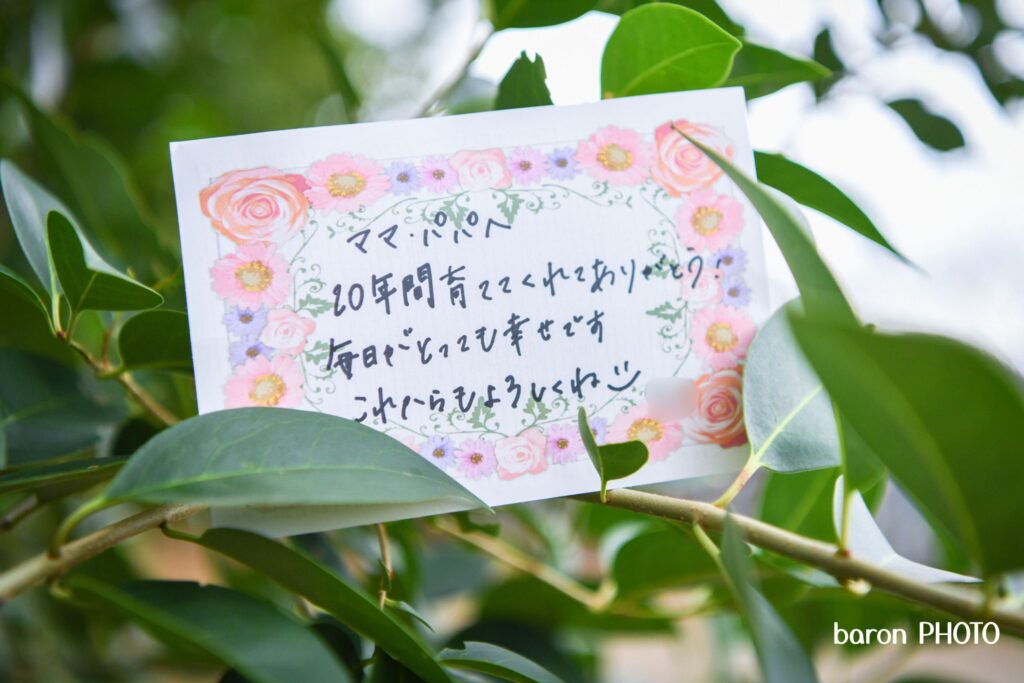 ママ・パパへ
20年間育ててくれてありがとう!
毎日がとっても幸せです
これからもよろしくね
baron PHOTO